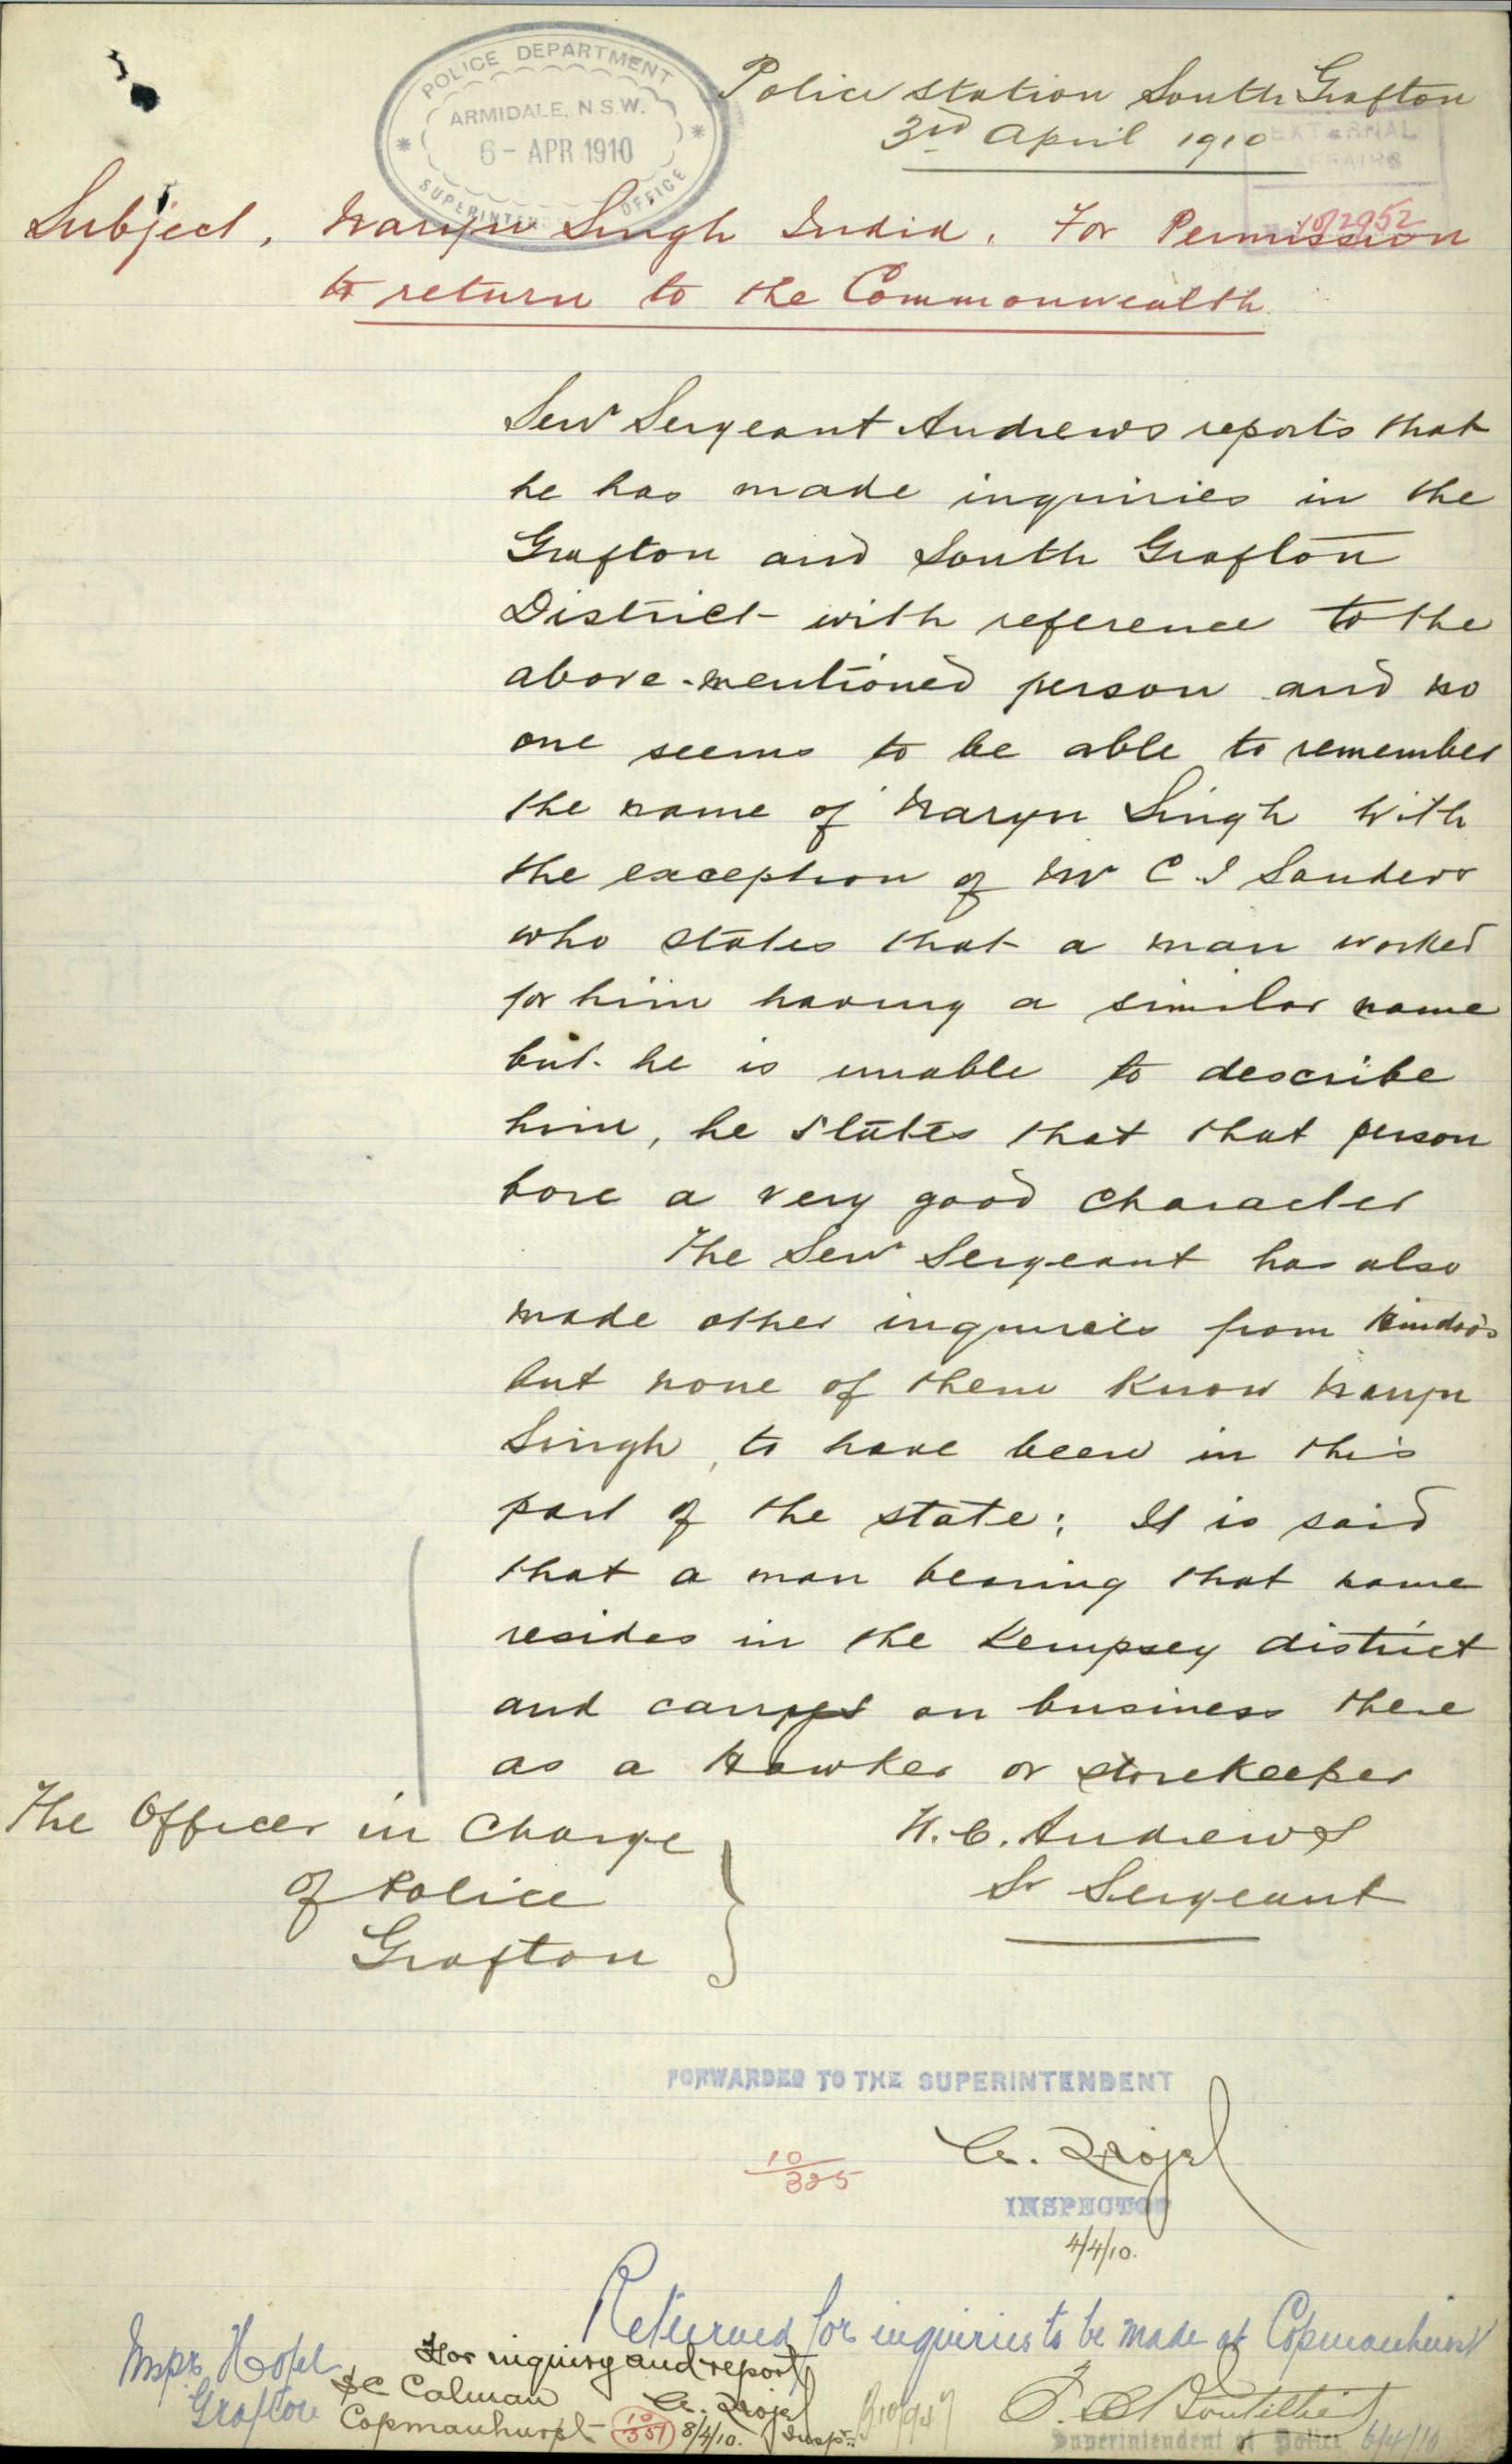 POLICE DEPARTMENT
ARMIDALE, N.S.W.
6 - APR 1910
SUPERINTENDENT'S OFFICE
Police Station South Grafton
3rd April 1910
EXTERNAL
AFFAIRS
10/2952
Subject, Naryn Singh India. For Permission
to return to the Commonwealth
Senr Sergeant Andrews reports that
he has made inquiries in the
Grafton and South Grafton
District with reference to the
above-mentioned person and no
one seems to be able to remember
the name of Naryn Singh with
the exception of Mr C I Sanders
who states that a man worked
for him having a similar name
but he is unable to describe
him, he states that that person
bore a very good character
The Senr Sergeant has also
made other inquiries from Hindoos
but none of them know Naryn
Singh, to have been in this
part of the state; It is said
that a man bearing that name
resides in the Kempsey district
and carries on business there
as a Hawker or storekeeper
The Officer in Charge
of Police
Grafton
H. C. Andrews
Sr Sergeant
FORWARDED TO THE SUPERINTENDENT
10/325
INSPECTOR
4/4/10.
Returned for inquiries to be made at Copmanhurst
Inspr
Grafton
For inquiry and report
SC Calman
Copmanhurst
10/351
8/4/10. Inspr
Superintendent of Police 6/4/10